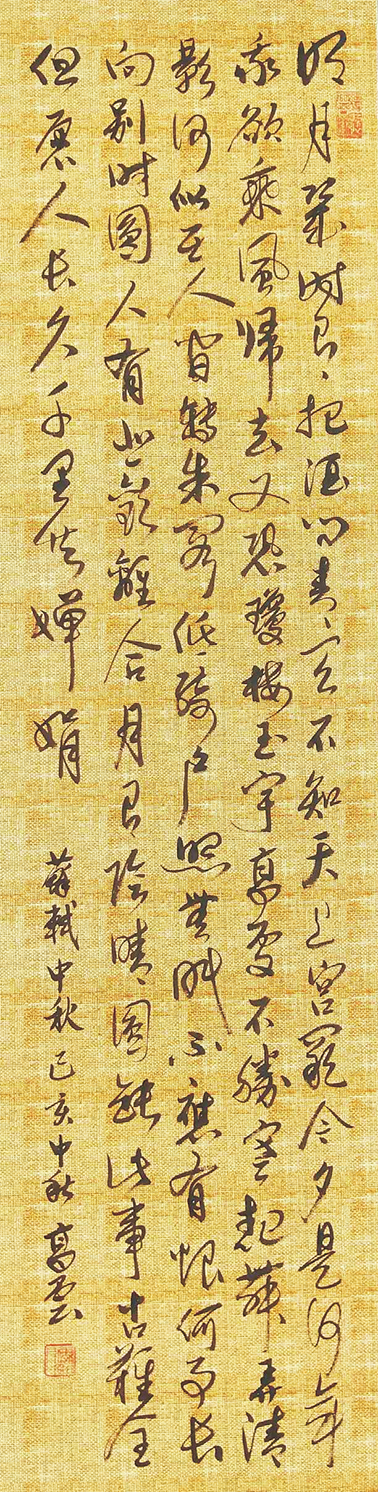 明月几时有把酒问青天不知天上宫阙今夕是何年
我欲乘风归去又恐琼楼玉宇高处不胜寒起舞弄清
影何似在人间转朱阁低绮户照无眠不应有恨何事长
向别时圆人有悲欢离合月有阴晴圆缺此事古难全
但愿人长久千里共婵娟
苏轼中秋己亥中秋高云